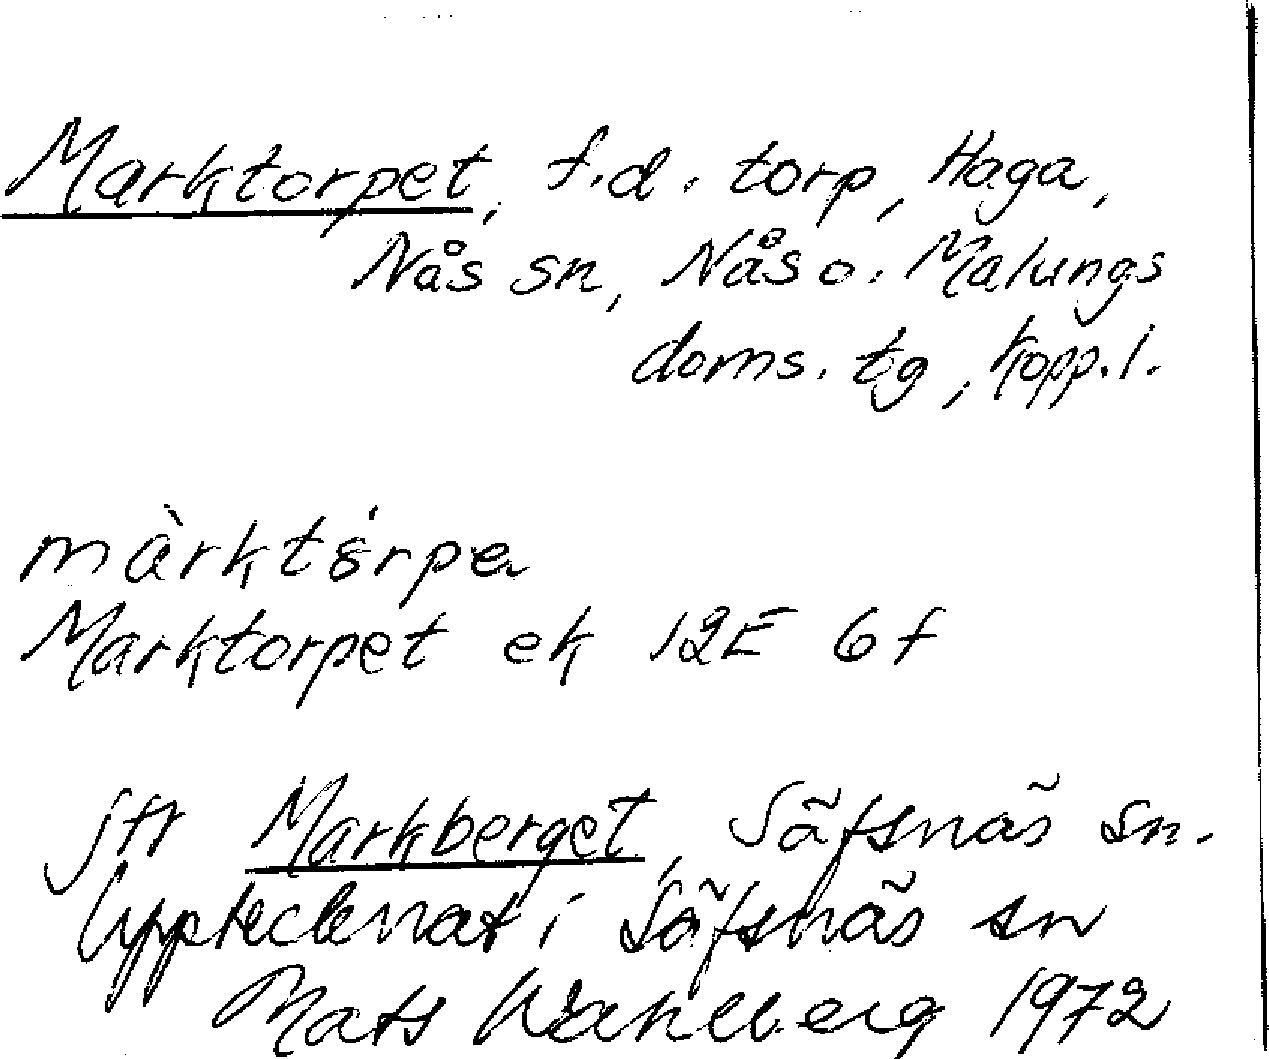 Marktorpet, f.d. torp, Haga,
Nås sn, Nås o. Malungs
doms. tg, Kopp. l.
màrktórpa
Marktorpet ek 12E 6f
jfr Markberget, Säfsnäs sn.
Upptecknat i Säfsnäs sn
Mats Wahlberg 1972